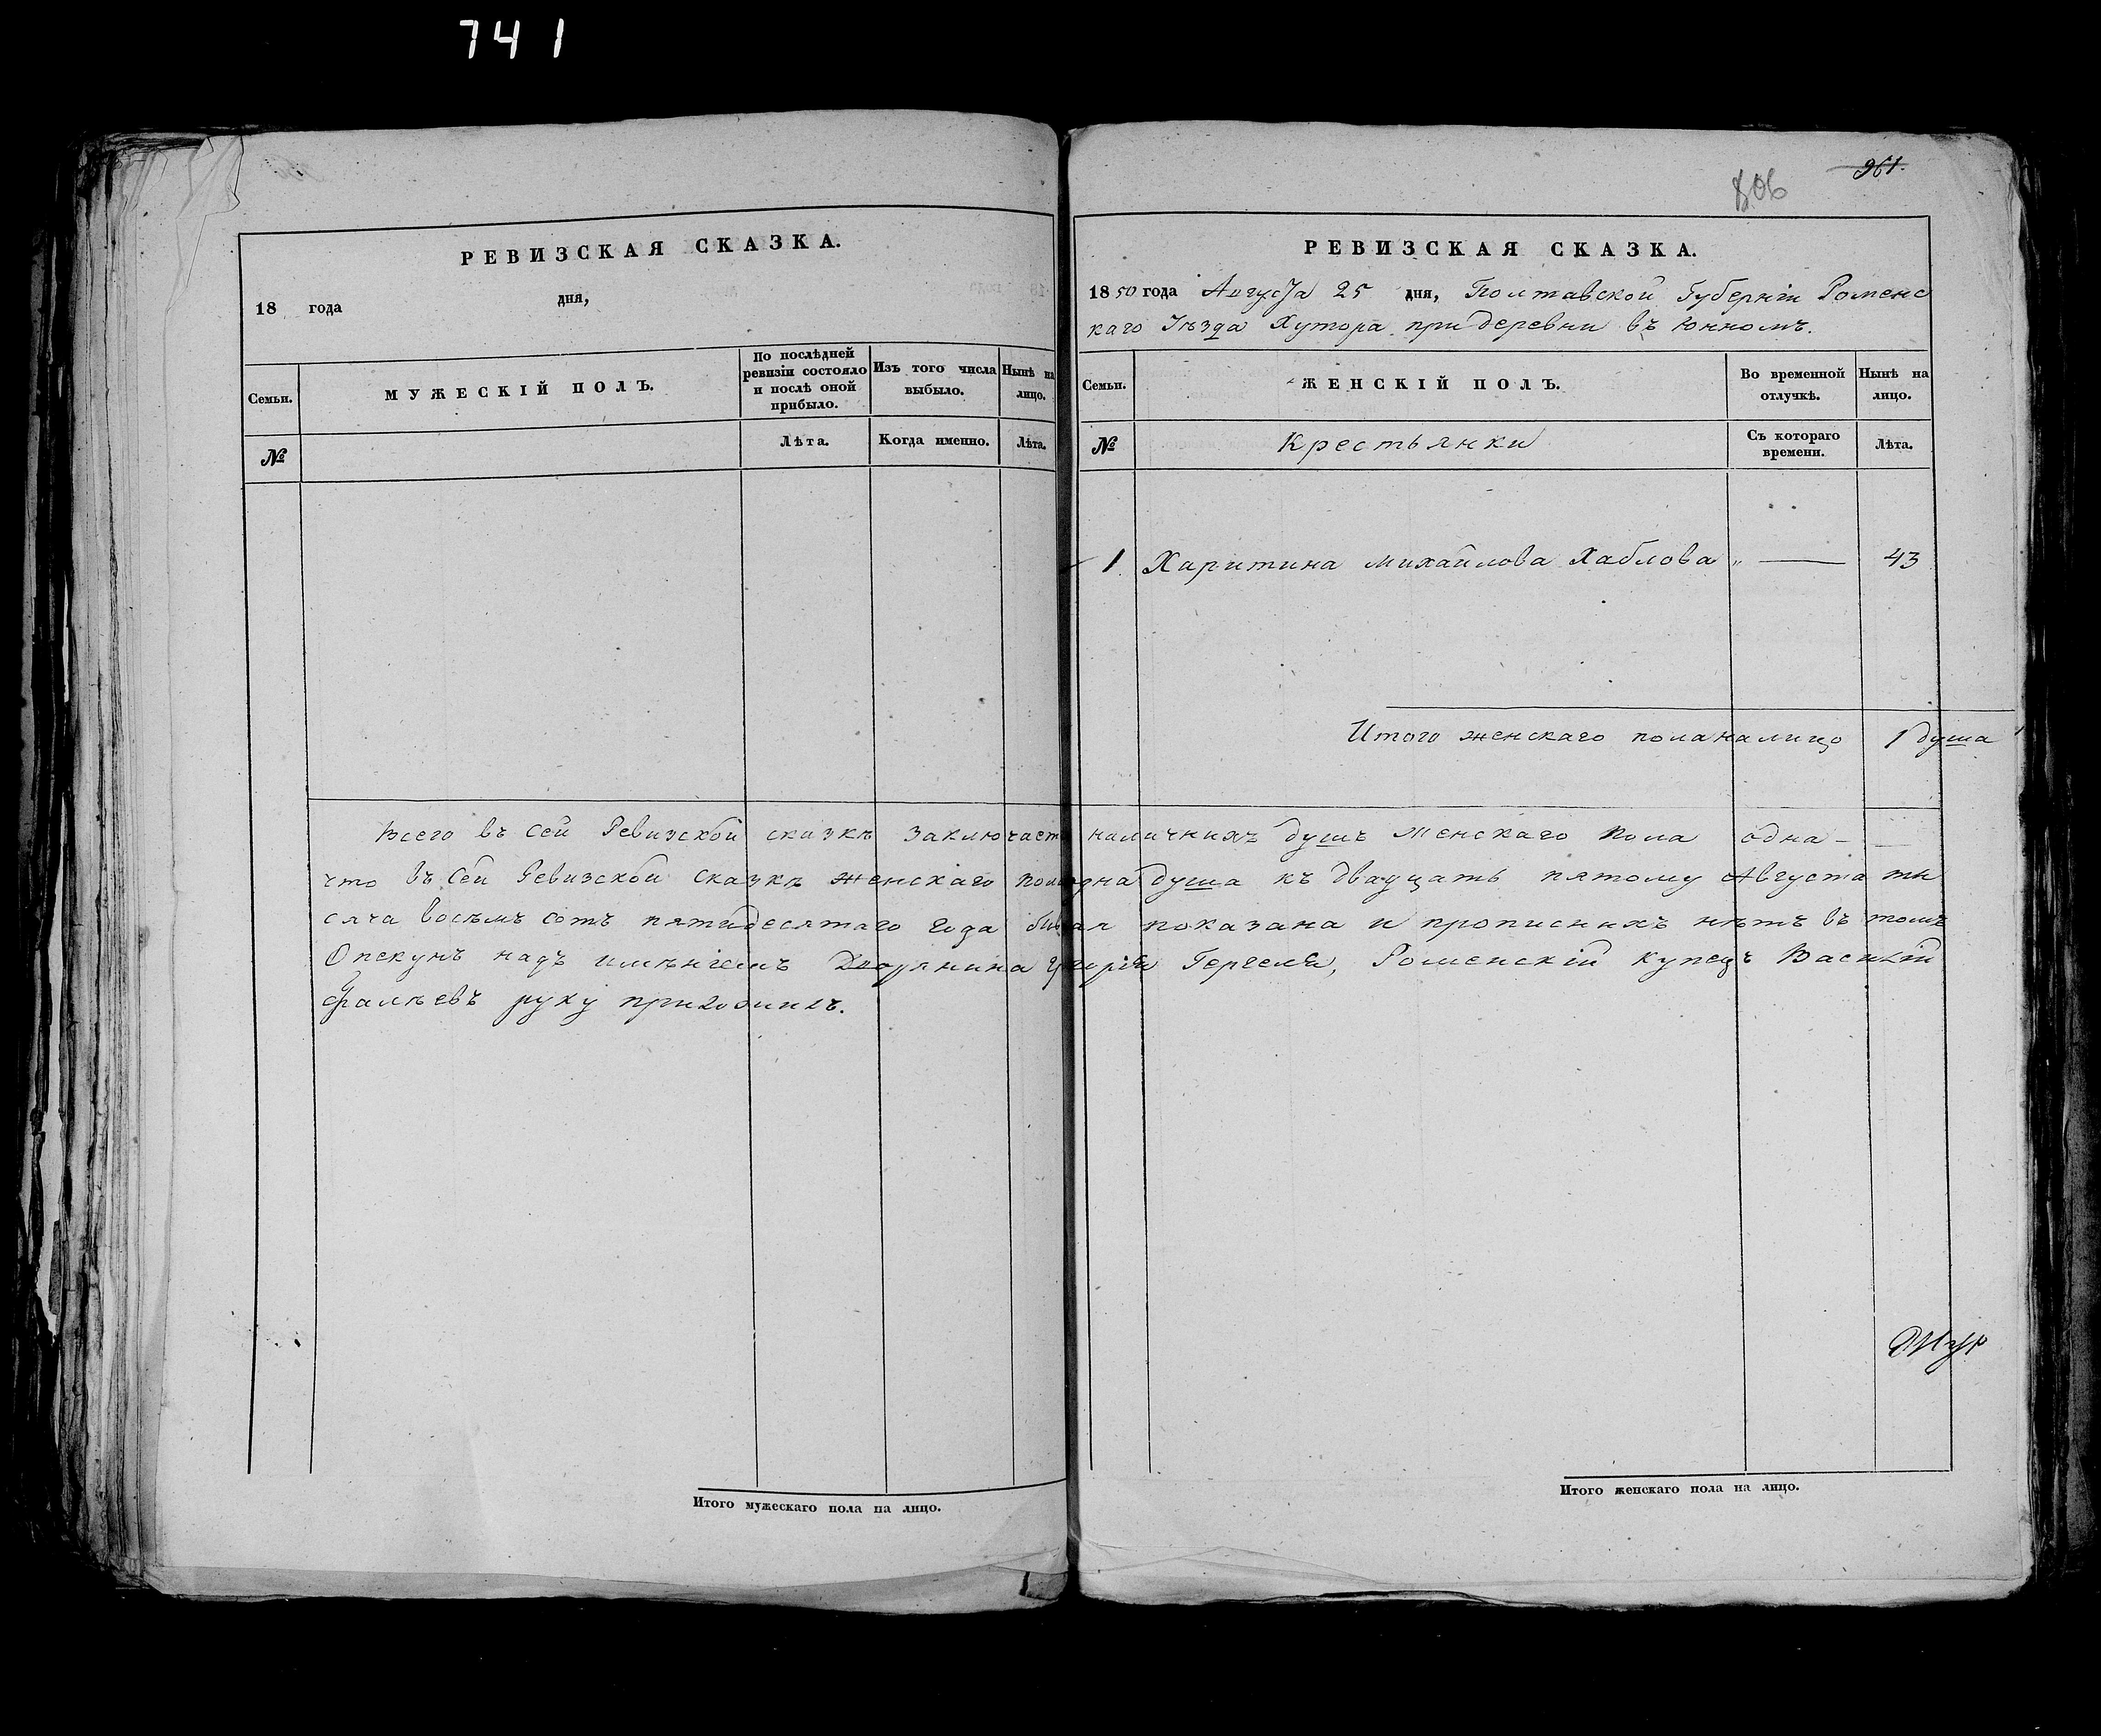 741
РЕВИЗСКАЯ СКАЗКА.
18 года дня,
Семьи.
МУЖЕСКІЙ ПОЛЪ.
По послѣдней ревизіи состояло и послѣ оной прибыло.
Изъ того числа выбыло.
Нынѣ на лицо.
№
Лѣта.
Когда именно.
Лѣта.
961.
806
РЕВИЗСКАЯ СКАЗКА.
1850 года Августа 25 дня, Полтавской Губерніи Роменс
каго Уѣзда Хутора при деревни въ Юнномъ.
Семьи.
ЖЕНСКІЙ ПОЛЪ.
Во временной отлучкѣ.
Нынѣ на лицо.
№
Крестьянки
Съ котораго времени.
Лѣта.
1. Харитина Михайлова Хаблова „ — 43
Итого женскаго пола на лицо 1 душа
Всего въ сей Ревизской сказкѣ заключает наличнихъ душъ женскаго пола одна —
что въ сей Ревизской Сказкѣ женскаго пола одна душа къ двадцать пятому Августа ти
сяча восѣмъ сотъ пятидесятаго года показана и прописнихъ нѣтъ въ томъ
Опекунъ надъ имѣніемъ Дворянина Гергеля, Роменскій купецъ Василій
Фалѣевъ руку приложилъ.
Итого мужескаго пола на лицо.
Итого женскаго пола на лицо.